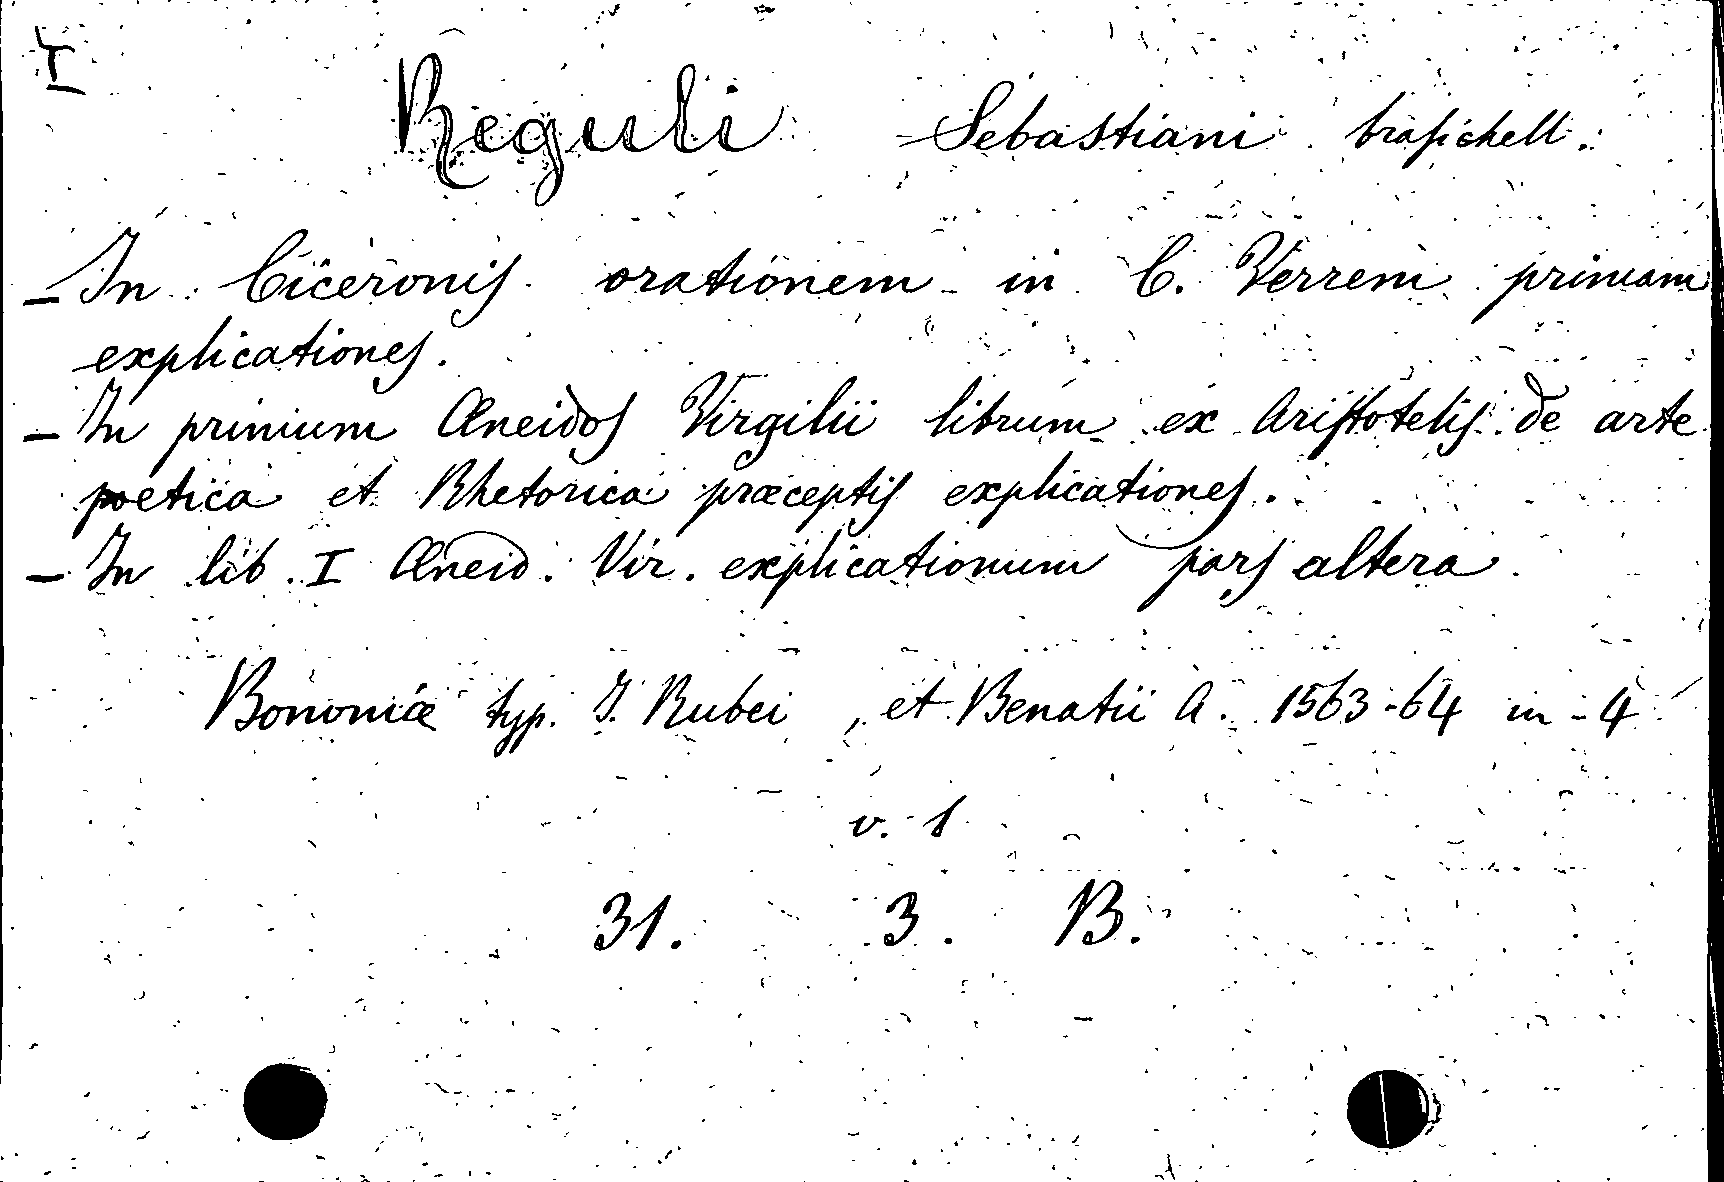 I
Reguli Sebastiani brasichell.
- In Ciceronis orationem in C. Verrem primam
explicationes.
- In primum Æneidos Virgilii librum ex Aristotelis de arte
poetica et Rhetorica præceptis explicationes.
- In lib. I Æneid. Vir. explicationum pars altera.
Bononiæ typ. J. Rubei, et Benatii A. 1563-64 in-4
v. 1
31. 3. B.